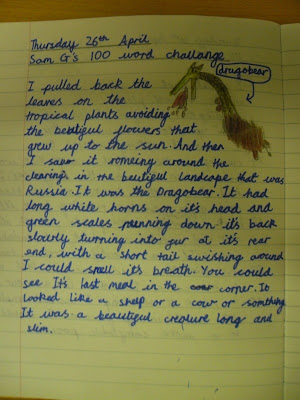 Thursday 26th April
Sam G's 100 word challange
dragobear
I pulled back the
leaves on the
tropical plants avoiding
the beutiful flowers that
grew up to the sun. And then
I saw it romeing around the
clearing in the beutiful landcape that was
Russia. It was the Dragobear. It had
long white horns on it's head and
green scales running down it's back
slowly turning into fur at it's rear
end, with a short tail swishing around
I could smell it's breath. You could
see It's last meal in the corner. It
looked like a sheep or a cow or somthing
It was a beautiful creature long and
slim.